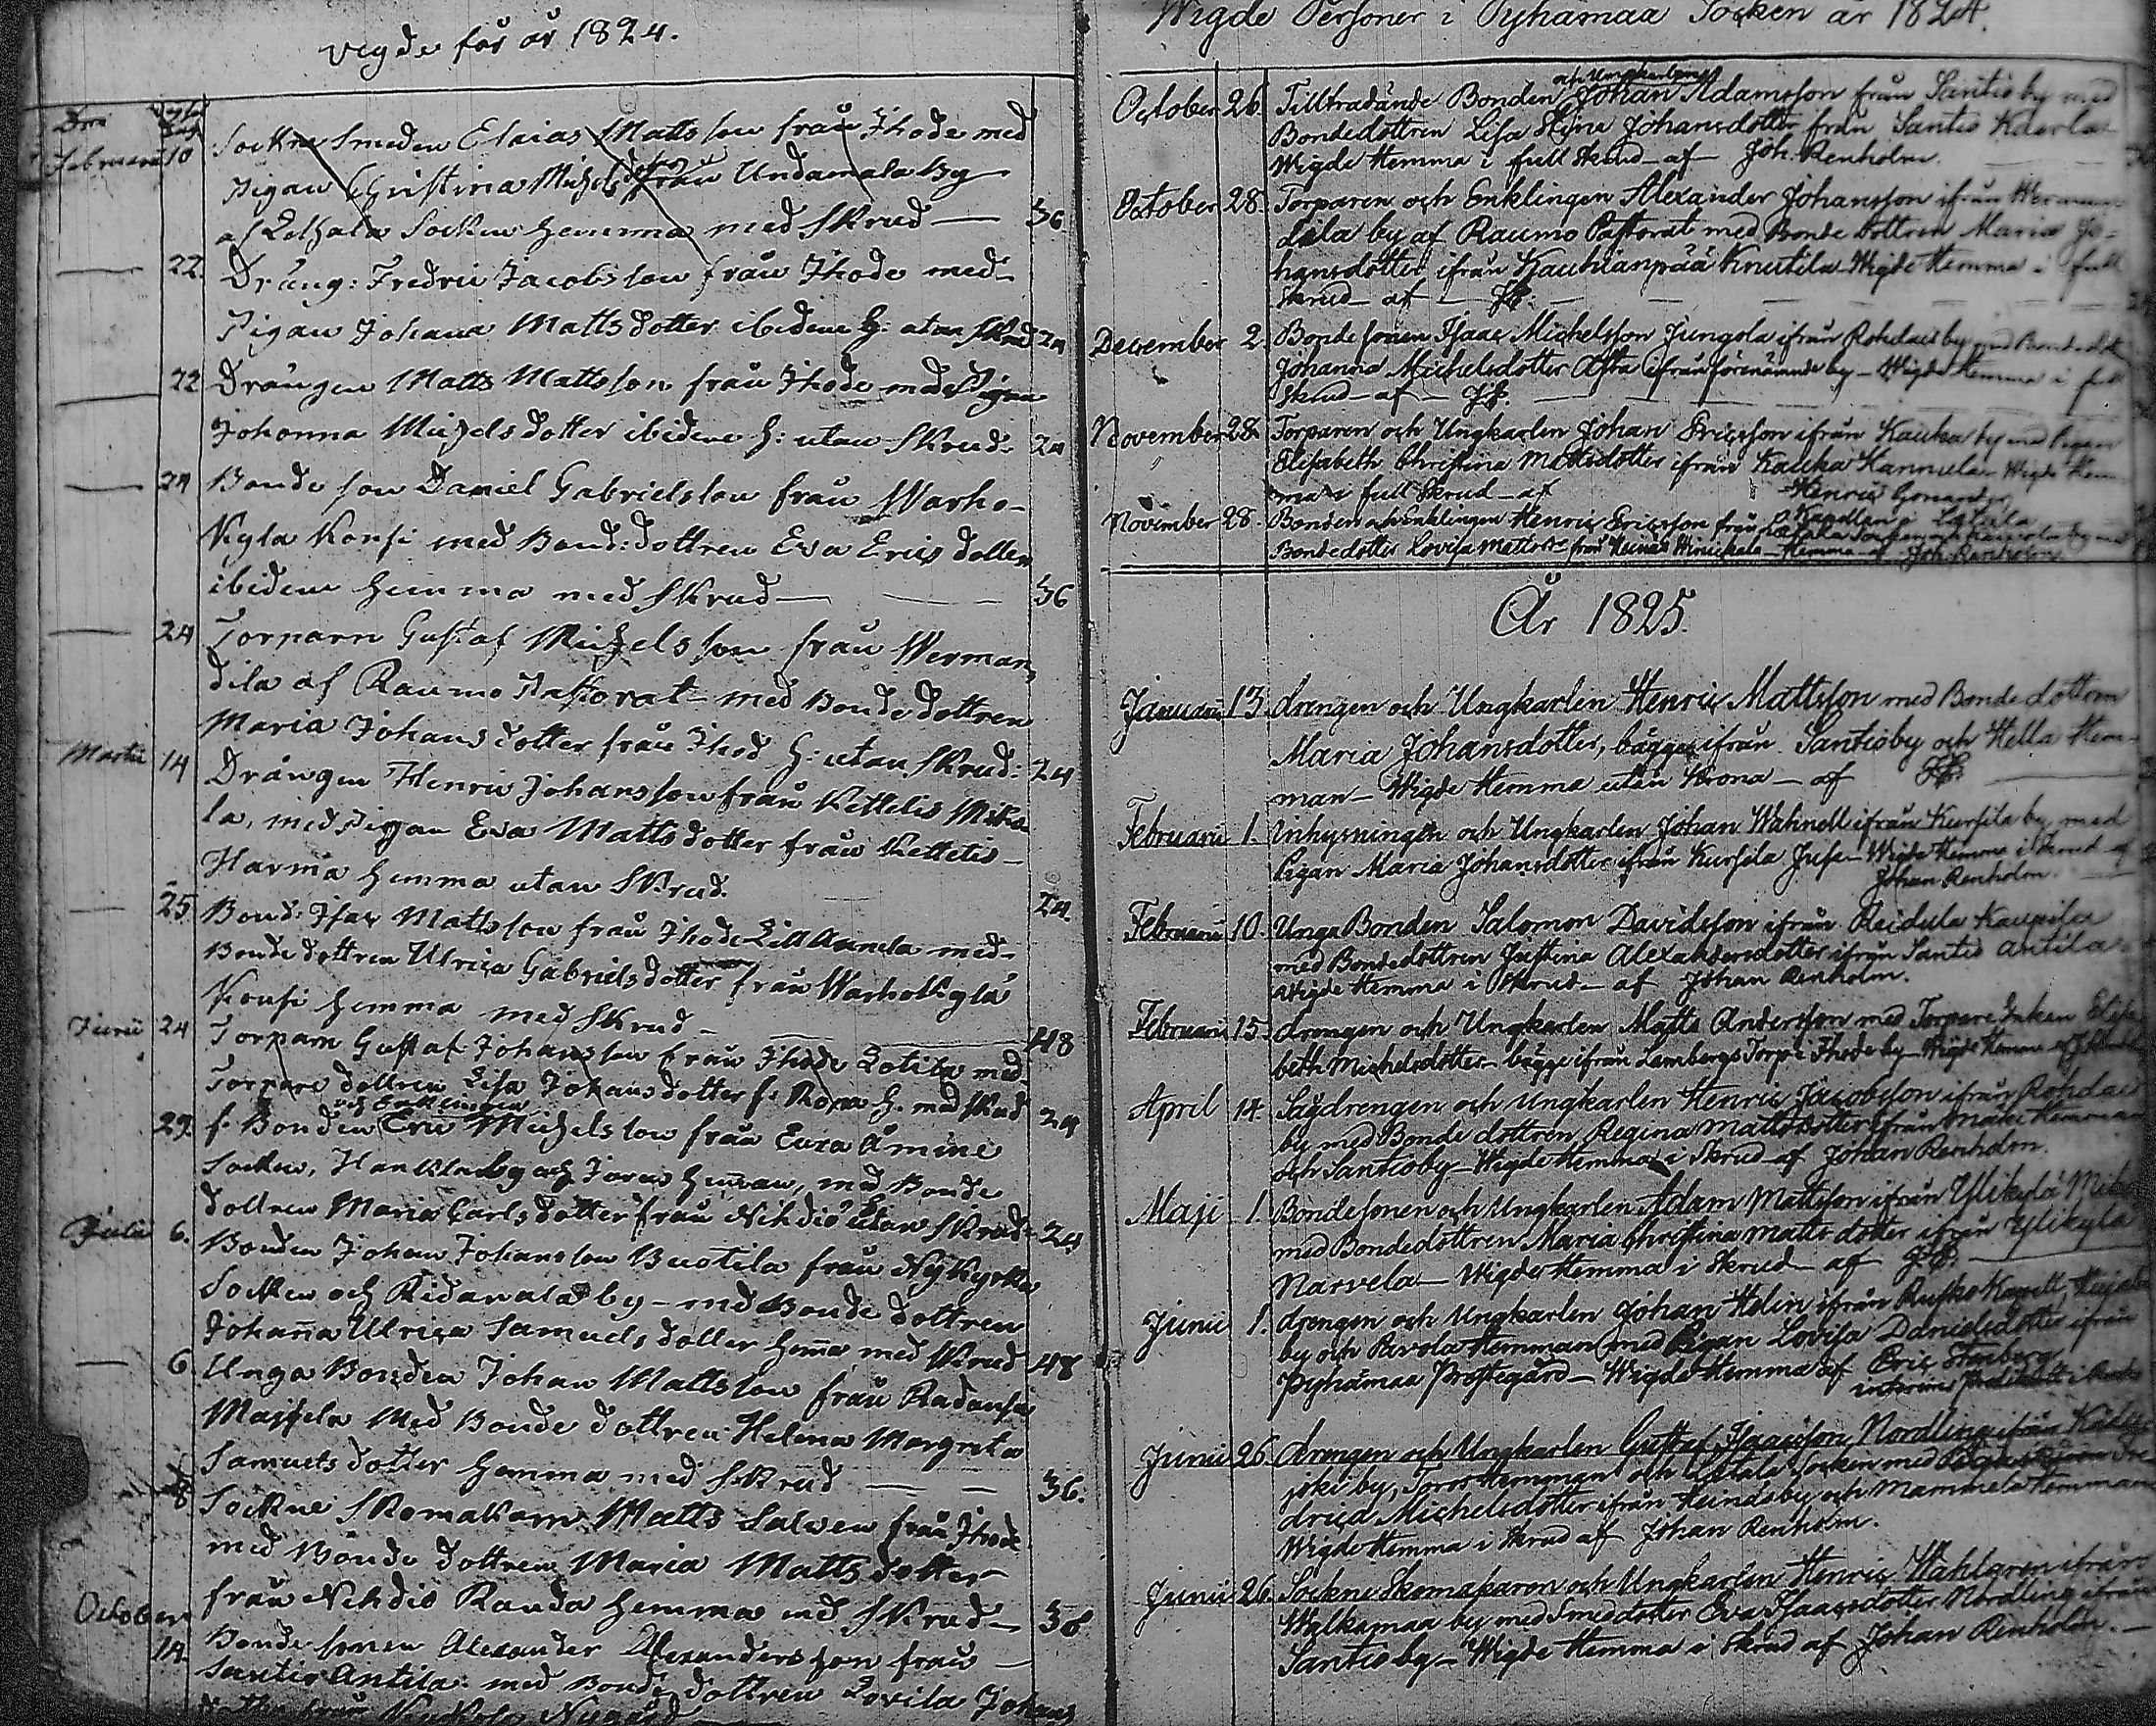 vigde för år 1824.
Den
Februarii 10 Sockne Smeden Elaias Mattsson från Ihode med
Pigan Christina Michelsdotter från Undamala By
af Letala Socken hemma med Skrud — 36
— 22. Dräng: Fredric Jacobsson från Ihode med
Pigan Johana Mattsdotter ibidem H: utan Skrud 24
— 22 Drängen Matts Mattsson från Ihode med Pigan
Johanna Michelsdotter ibidem H: utan Skrud: 24
— 24 Bonde son Daniel Gabrielsson från Warho-
kyla Konsi med Bond: dottren Eva Ericsdotter
ibidem hemma med Skrud — 36
— 24 Torparn Gustaf Michelsson från Werman-
dila af Raumo Pastorat med Bonde dottren
Maria Johansdotter från Ihod H: utan Skrud: 24
Martii 14 Drängen Henric Johansson från Kettelis Miko-
la, med Pigan Eva Mattsdotter från Kettelis
Harma hemma utan Skrud. 24.
— 25 Bond: Isac Mattsson från Ihode Lill Annela med
Bonde dottren Ulrica Gabrielsdotter från Warhokyla
Konsi hemma med Skrud — 48
Junii 24 Torparn Gustaf Johansson från Ihode Lotila med
Torpare dottren Lisa Johansdotter f: Rona H. med Skrud 24
och Enklingen
29. f. Bonden Eric Michelsson från Eura Åminne
Socken, Hankila by och Jorva hemman, med Bonde
dottren Maria Carlsdotter från Nihdiö utan Skrud: 24
Julii 6. Bonden Johan Johansson Buotila från Nykyrko
Socken och Ridanala by — med Bonde dottren
Johana Ulrica Samuelsdotter Hema med Skrud 48
— 6 Unga Bonden Johan Mattsson från Radansu
Maissela Med Bonde dottren Helena Margreta
Samuelsdotter hemma med Skrud — — 36.
8 Sockne Skomakarn Matts Salven från Ihode
med Bonde dottren Maria Mattsdotter
från Nihdiö Randa hemma med Skrud — 36
October
14 Bonde sonen Alexander Alexandersson från
Santio Antila med Bonde dottren Lovisa Johans
Wigde Personer i Pyhämaa Socken år 1824.
och Ungkarlen
October 26. Tillträdande Bonden Johan Adamsson från Santio by med
Bondedottren Lisa Stina Johansdotter från Santio Kaarla
Wigde Hemma i full Skrud — af Joh. Renholm.
October 28. Torparen och Enklingen Alexander Johansson ifrån Werman
dila by af Raumo Pastorat med Bonde dottren Maria Jo-
hansdotter ifrån Kauhianpää Knutila Wigde Hemma i full
Skrud — af —
December 2. Bonde sonen Isaac Michelsson Jungola ifrån Rohdais by med Bondedott
Johanna Michelsdotter ifrån förenämnde by — Wigde Hemma i full
Skrud — af —
November 28. Torparen och Ungkarlen Johan Ericsson ifrån Kauka by med Pigan
Elisabeth Christina Mattsdotter ifrån Kauka Hannula Wigde Hem-
ma i full Skrud — af Henric
November 28. Bonden och Enklingen Henric Ericsson från
Bondedotter Lovisa Mattsdr från Heinäs — Hemma — af Joh. Renholm
År 1825.
Januarii 13. drengen och Ungkarlen Henric Mattsson med Bonde dottren
Maria Johansdotter, bägge ifrån Santio by och Hella Hem-
man — Wigde Hemma utan Krona — af
Februarii 1. Inhysningen och Ungkarlen Johan Wahnell ifrån Kursila by med
Pigan Maria Johansdotter ifrån Kursila Juse — Wigde Hemma i Skrud af
Johan Renholm.
Februarii 10. Unga Bonden Salomon Davidsson ifrån Reidula Kaupila
med Bondedottren Justina Alexandersdotter ifrån Santio Antila
Wigde Hemma i Skrud — af Johan Renholm.
Februarii 15. drengen och Ungkarlen Matts Andersson med Torpare Enkan Elisa
beth Michelsdotter bägge ifrån Lambergs Torp i Ihode by — Wigde Hemma
April 14. Sagdrengen och Ungkarlen Henric Jacobsson ifrån Rohdais
by med Bonde dottren Regina Mattsdotter ifrån Mäki Hemman
och Santio by — Wigde Hemma i Skrud — af Johan Renholm.
Maji 1. Bondesonen och Ungkarlen Adam Mattsson ifrån Ylikylä
med Bondedottren Maria Christina Mattsdotter ifrån Ylikylä
Narvela — Wigde Hemma i Skrud — af
Junii 1. drengen och Ungkarlen Johan Helin ifrån Rusko Kapell,
by och Pavola Hemman med Pigan Lovisa Danielsdotter ifrån
Pyhämaa Prostegård — Wigde Hemma af Eric Stenberg
Junii 26. drengen och Ungkarlen Gustaf Isaacsson Nordling ifrån
joki by, Toros Hemman och Letala Socken med
drica Michelsdotter ifrån Heinäs by och Mammela Hemman
Wigde Hemma i Skrud af Johan Renholm.
Junii 26. Sockne Skomakaren och Ungkarlen Henric Wahlgren ifrån
Walkamaa by med Smeddotter Eva Isaacsdotter Nordling ifrån
Santio by — Wigde Hemma i Skrud af Johan Renholm. —